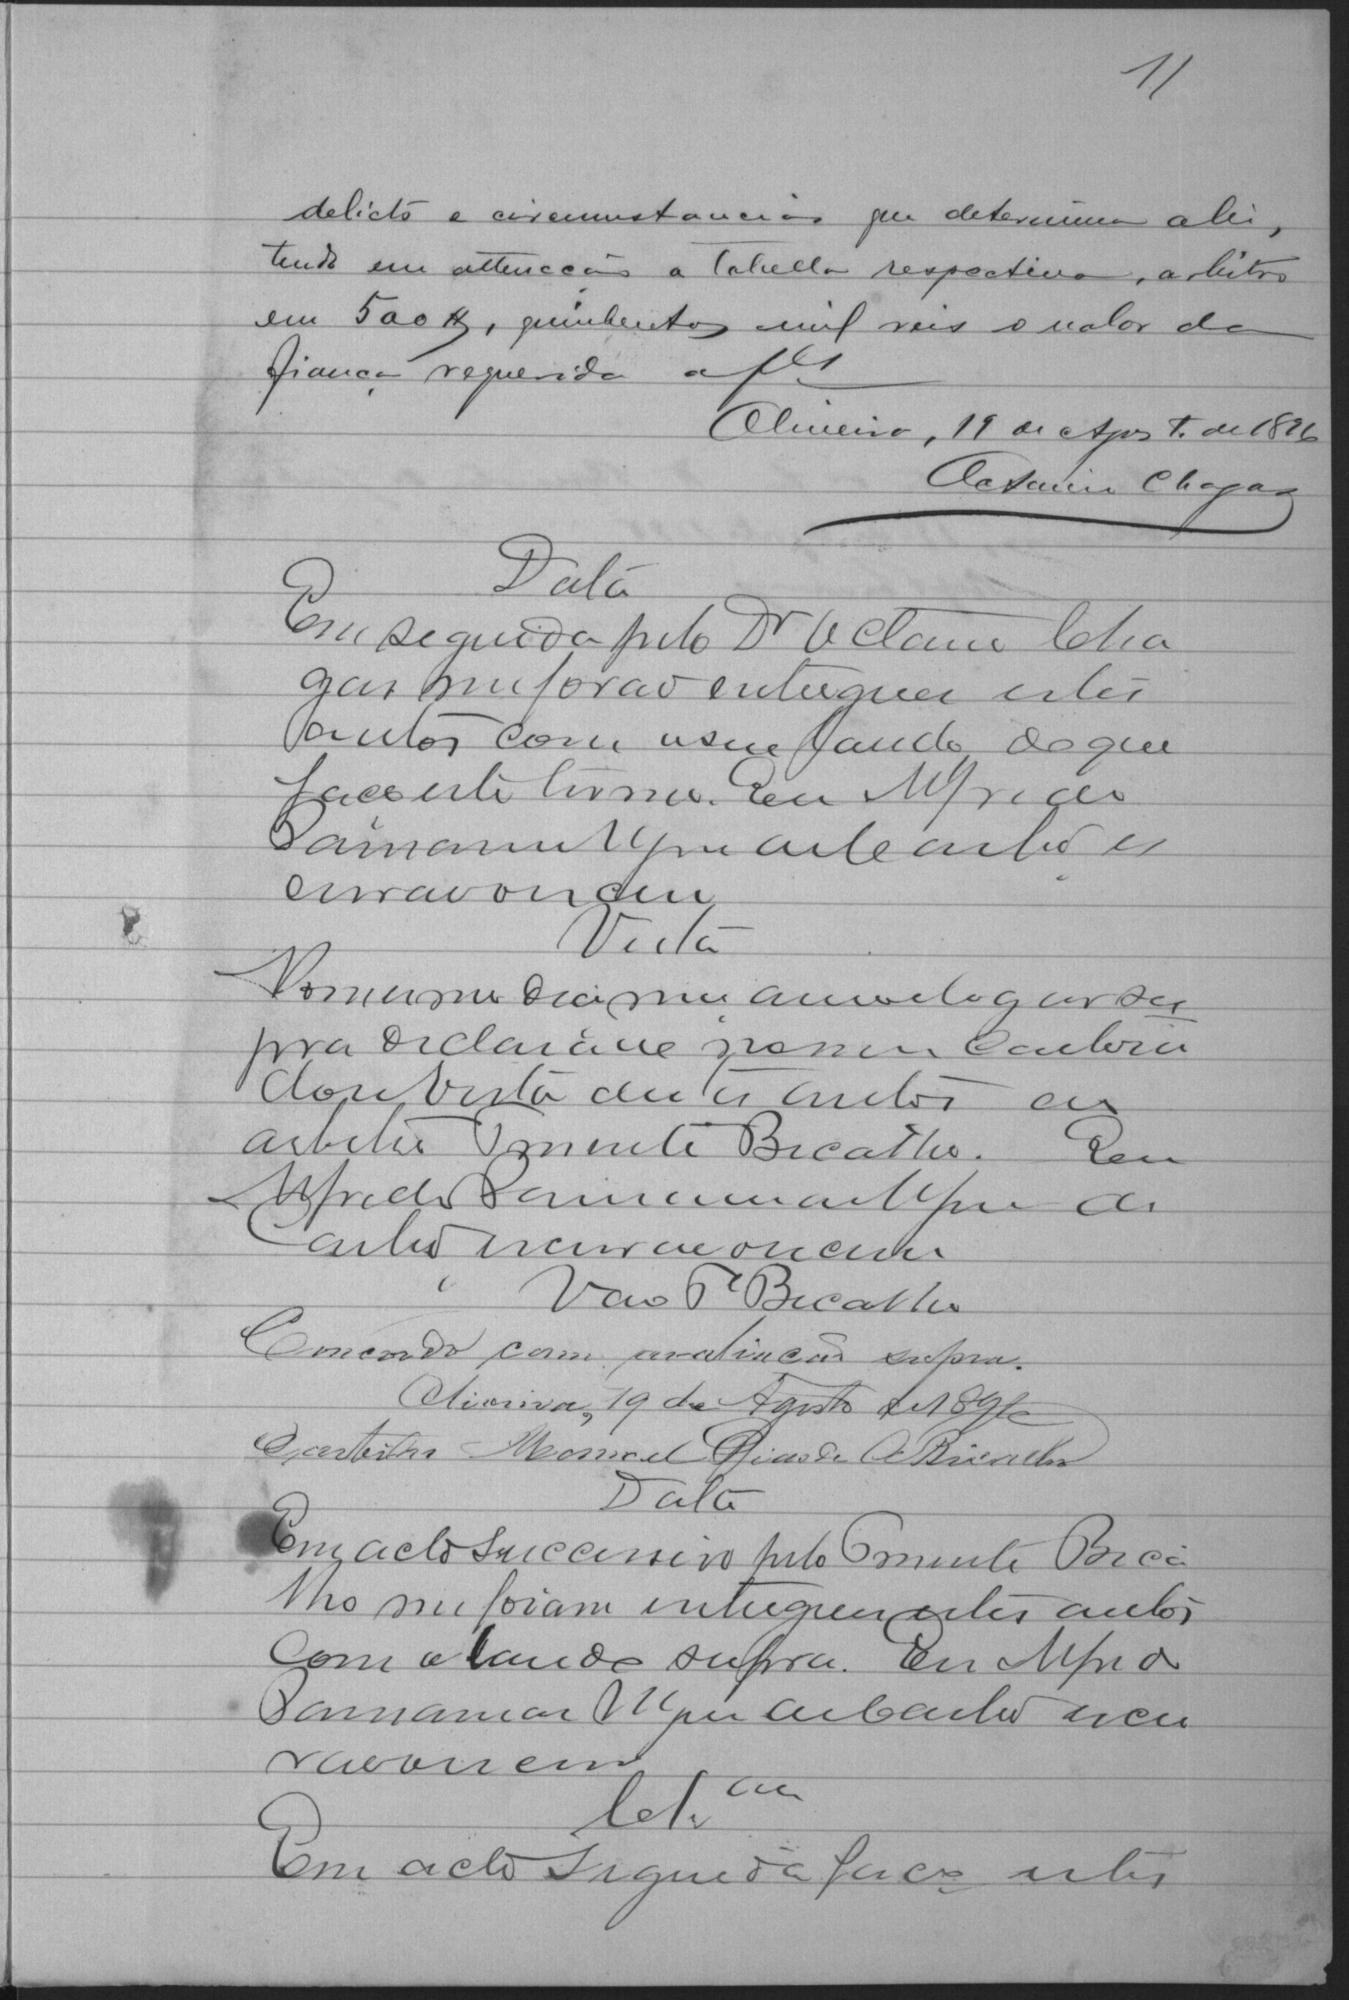 11
delicto e circumstancias que determina a lei,
tendo em attencção a Tabella respectiva, arbitro
em 500$, quinhentos mil reis o valor da
fiança requerida a fls
Oliveira, 19 de Agosto de 1896
Octavio Chagas
Data
Em seguida pelo Dr Octavio Cha
gas me forão entregues estes
autos com o seu laudo do que
faço este termo. Eu Alfredo
escrivão
Vista
No mesmo dia mez anno e logar su
pra declarado nesse cartorio
dou vista destes autos ao
arbitro Tenente Bicalho. Eu
Alfredo
Castro escrivão escrevi
Vão Te Bicalho
Concordo com avaliação supra.
Oliveira, 19 de Agosto de 1896
O arbitro Manoel Dias de Bicalho
Data
Em acto successivo pelo Tenente Bica
lho me foram entregues estes autos
com o laudo supra. Eu Alfredo
Castro escri
Clsam
Em acto seguida faço estes